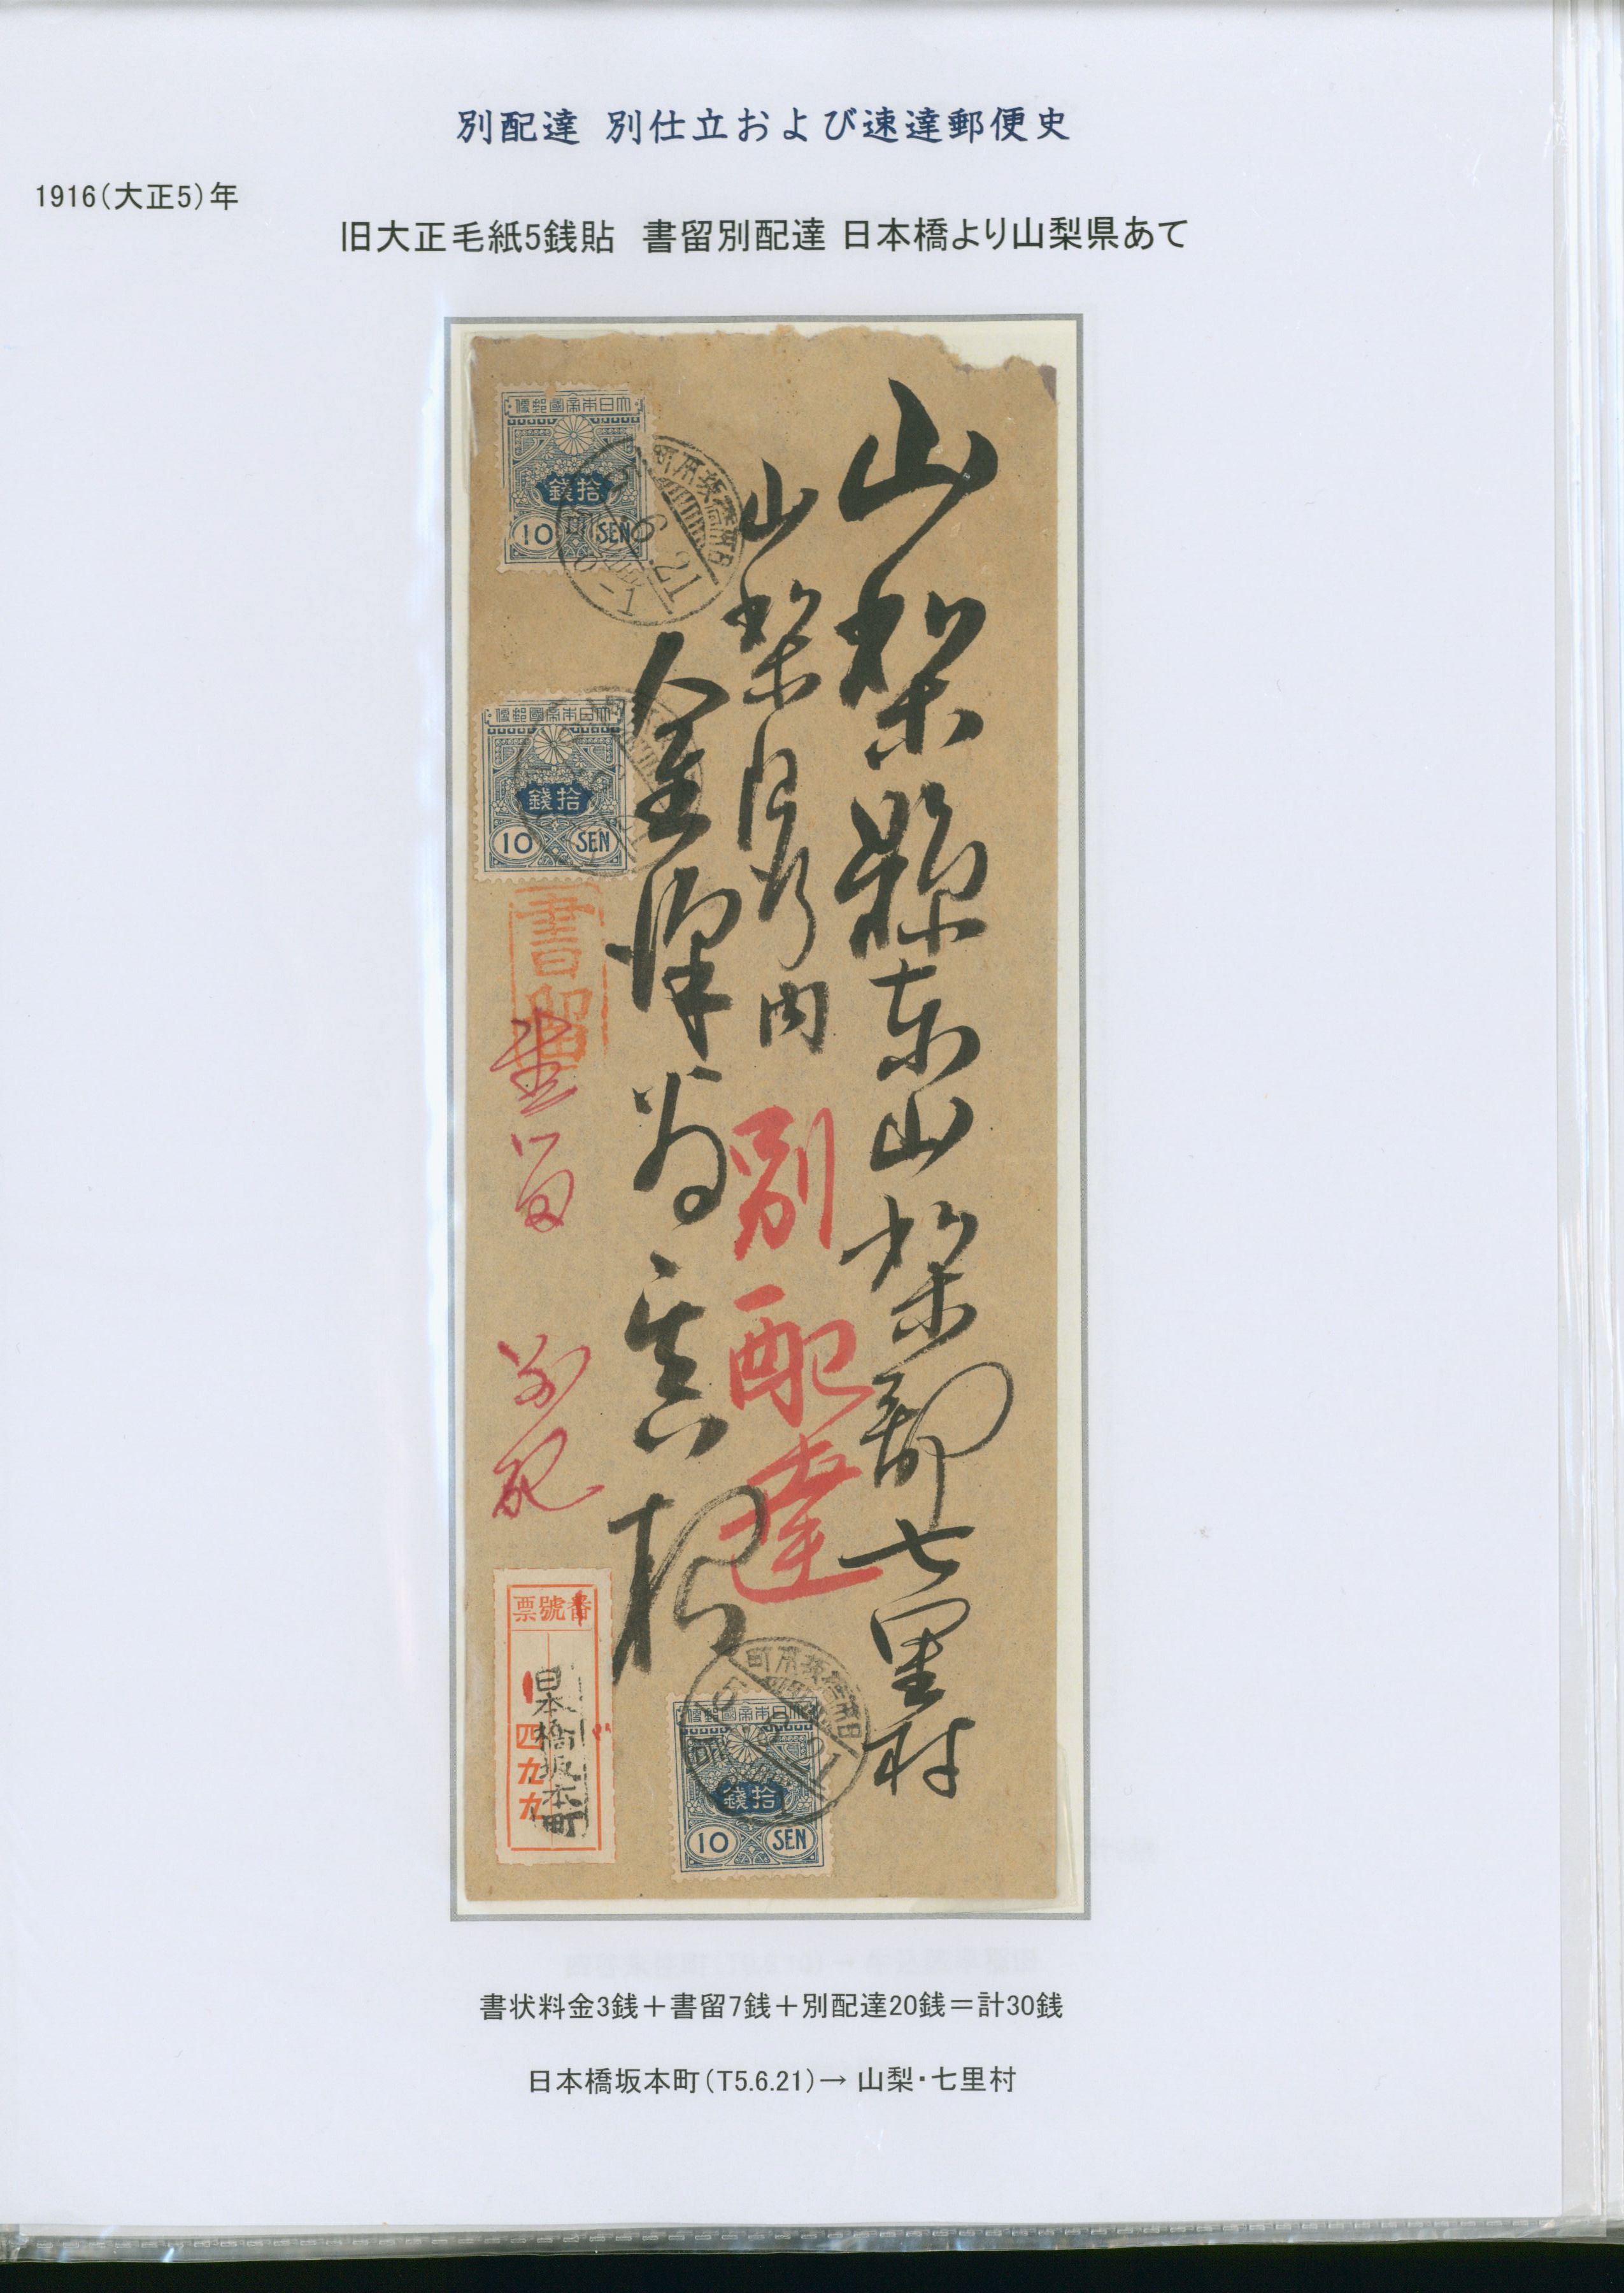 別配達 別仕立および速達郵便史
1916(大正5)年
旧大正毛紙5銭貼 書留別配達 日本橋より山梨県あて
山梨縣東山梨郡七里村
山梨
内
別配達
金澤
様
便郵國帝本日大
錢拾
10 SEN
5.6.21
便郵國帝本日大
錢拾
10 SEN
書留
書留
別配
票號番
日本橋坂本町
四九九
便郵國帝本日大
錢拾
10 SEN
書状料金3銭+書留7銭+別配達20銭=計30銭
日本橋坂本町(T5.6.21)→ 山梨・七里村